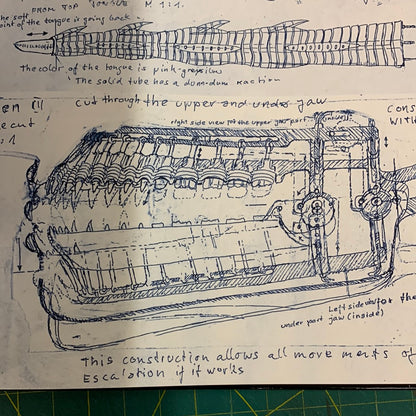 FROM TOP M 1:1
the soft
point of the tongue is going back
The color of the tongue is pink-greyslim
The solid tube has a dum-dum reaction
en III
cut through the upper and under jaw
CONS
WITH
e cut
:1
right side view for the upper jaw part (inside)
Left side view for the
under part jaw (inside)
This construction allows all move ments of
Escalation if it works